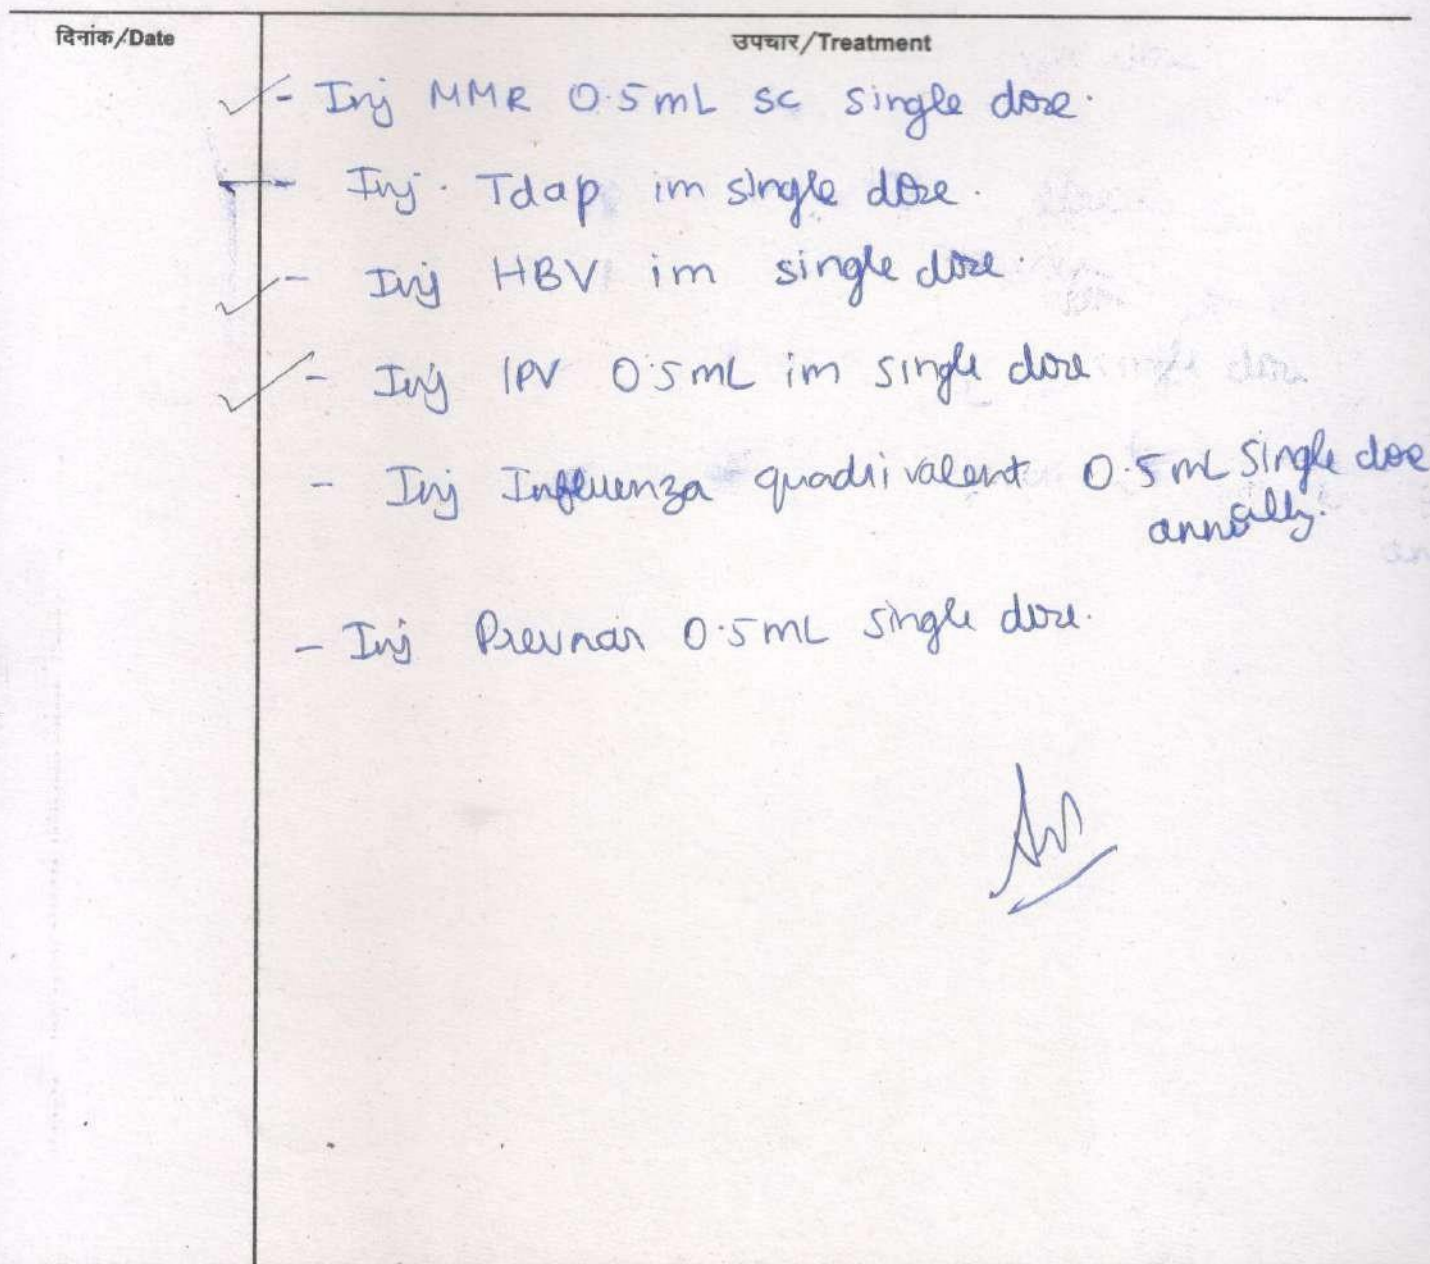 दिनांक/Date
उपचार/Treatment
✓ - Inj MMR 0.5mL sc single dose.
- Inj. Tdap im single dose.
✓ - Inj HBV im single dose.
✓ - Inj IPV 0.5mL im single dose
- Inj Influenza quadrivalent 0.5mL single dose
annually.
- Inj Prevnar 0.5mL single dose.